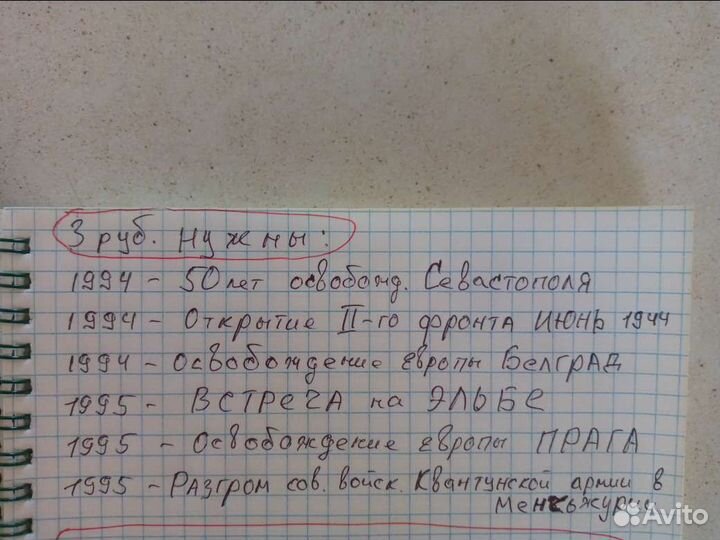 3 руб. Нужны:
1994 - 50 лет освобожд. Севастополя
1994 - Открытие II-го фронта июнь 1944
1994 - освобождение европы Белград
1995 - Встреча на Эльбе
1995 - Освобождение европы ПРАГА
1995 - Разгром сов. войск. Квантунской армии в
Avito